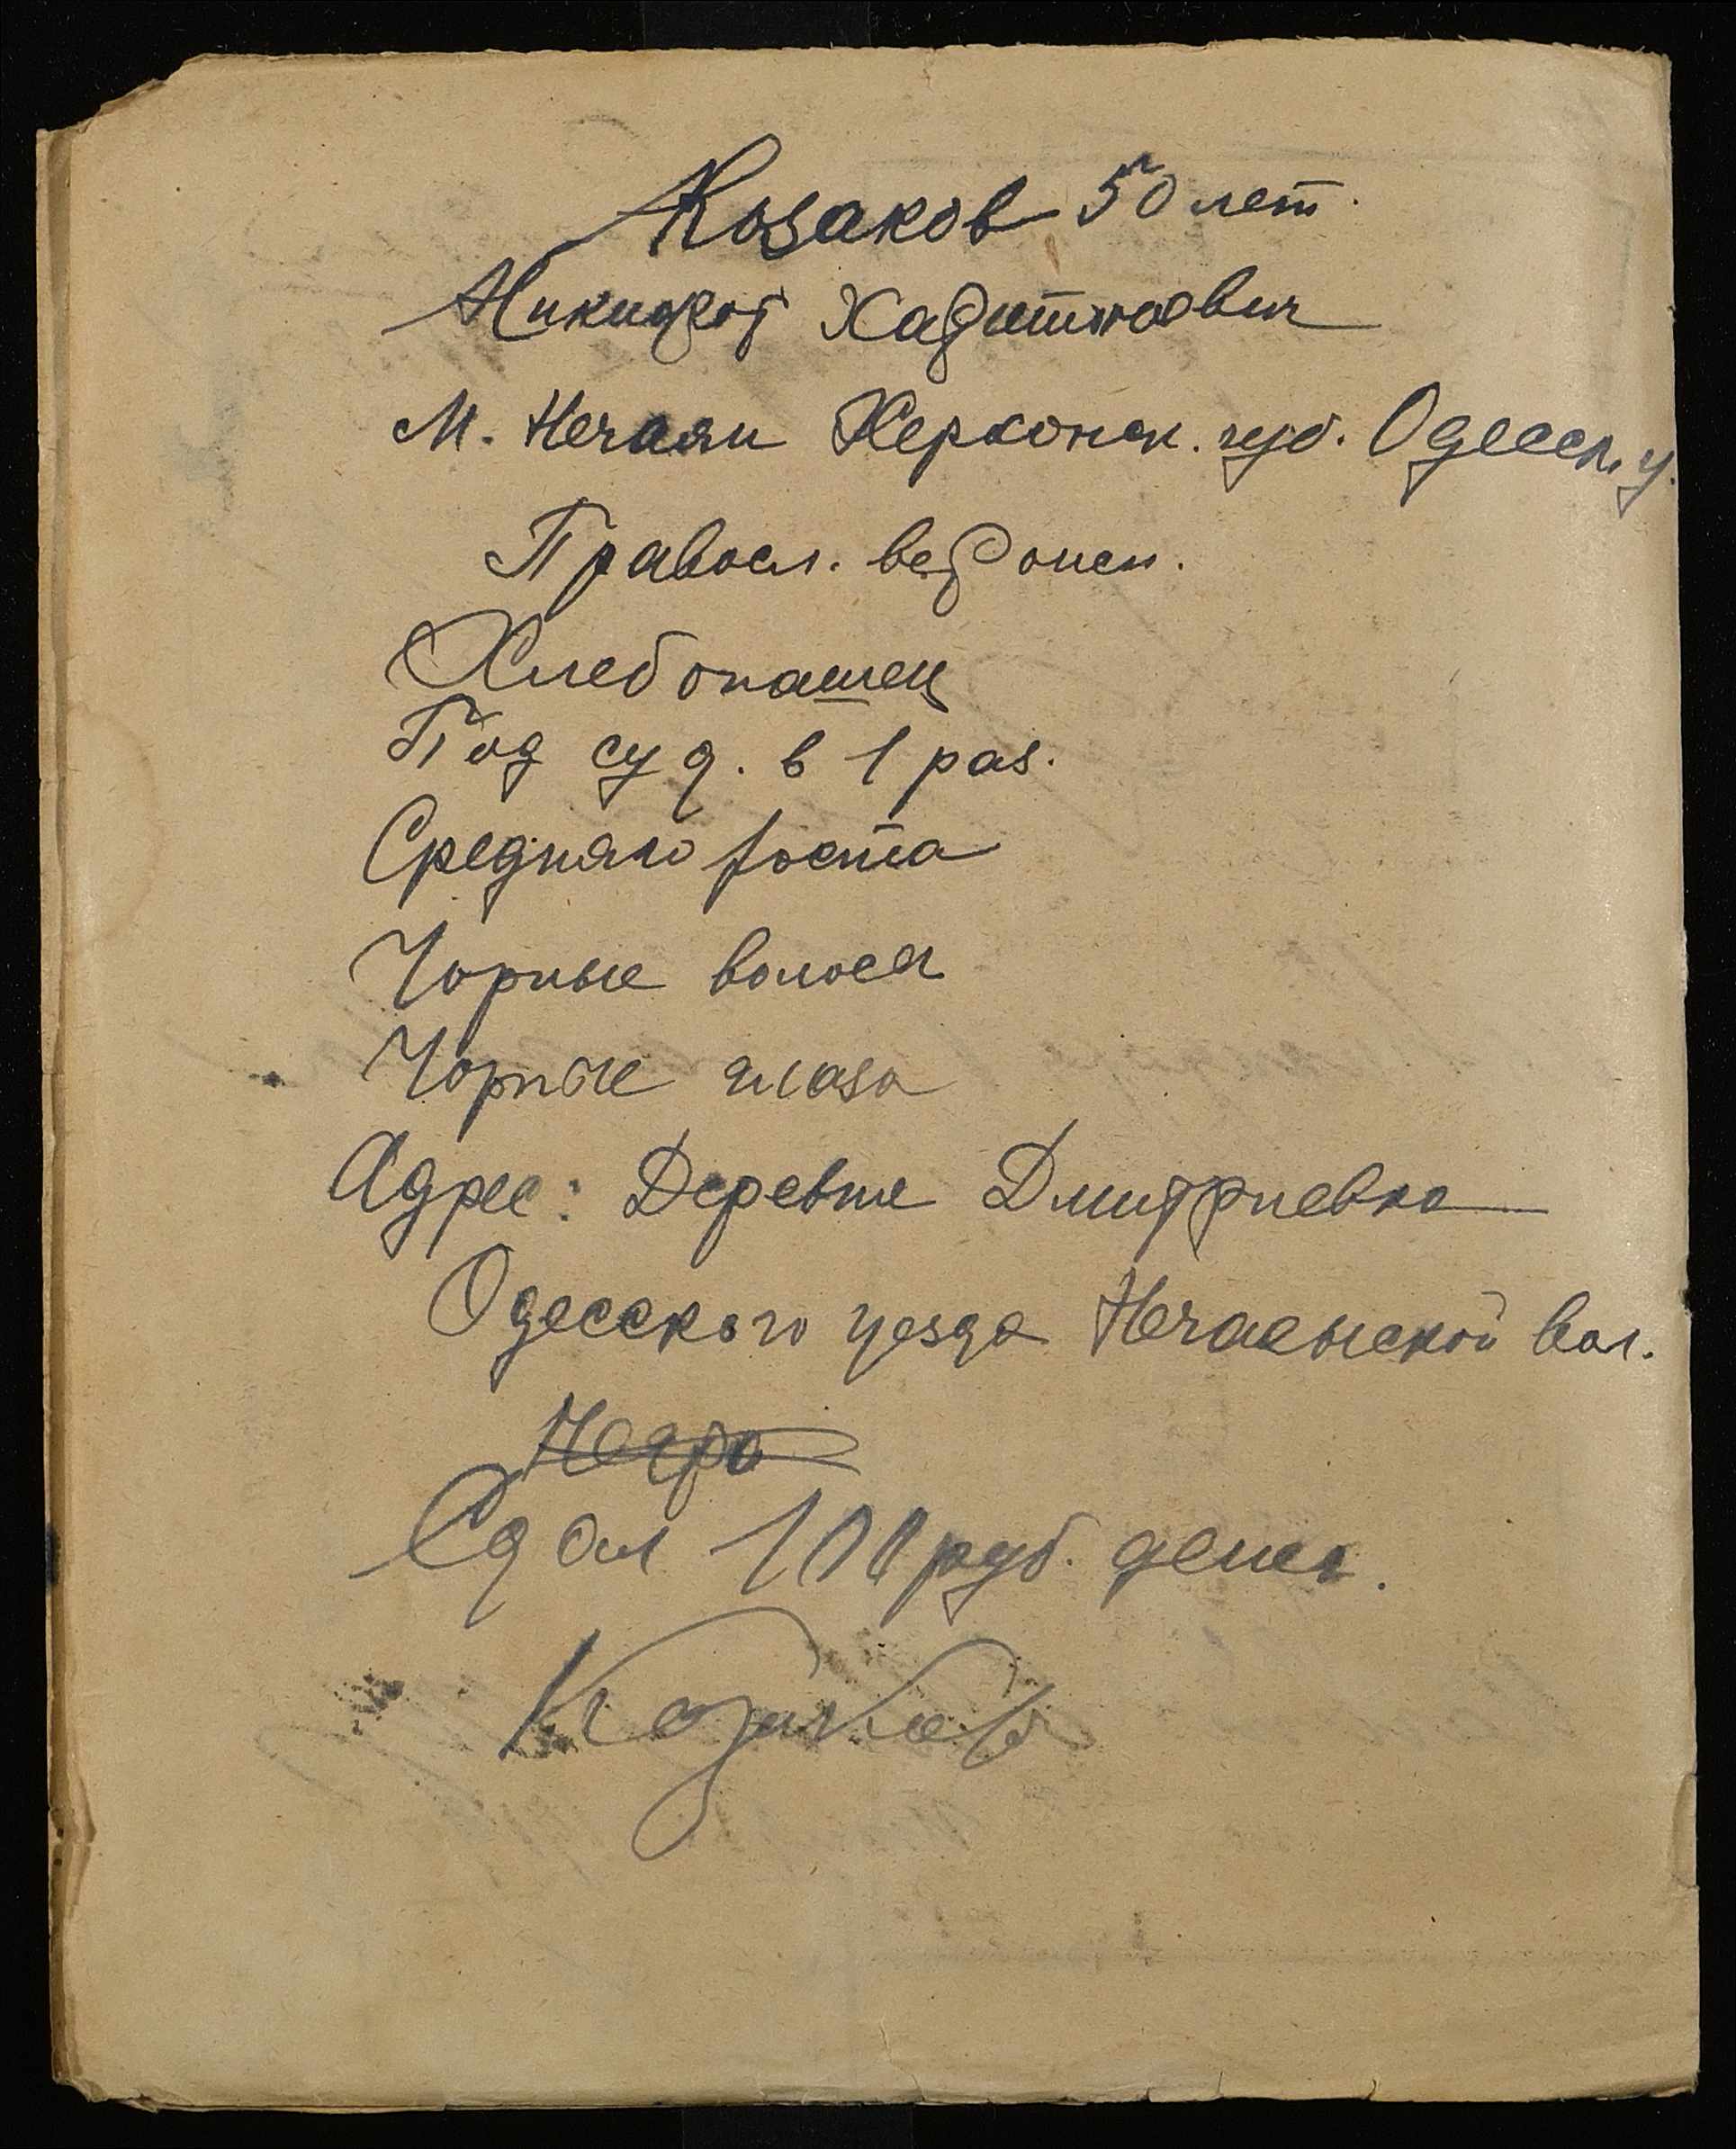 Козаков 50 лет.
Никифор Харитонович
М. Нечаян Херсонск. губ. Одесск. у.
Правосл. вероисп.
Хлебопашец
Под суд. в 1 раз.
Средняго роста
Чорные волоса
Чорные глаза
Адрес: Деревне Дмитриевка
Одесского уезда Нечаянской вол.
Сдал 101 руб. денег.
Козаков